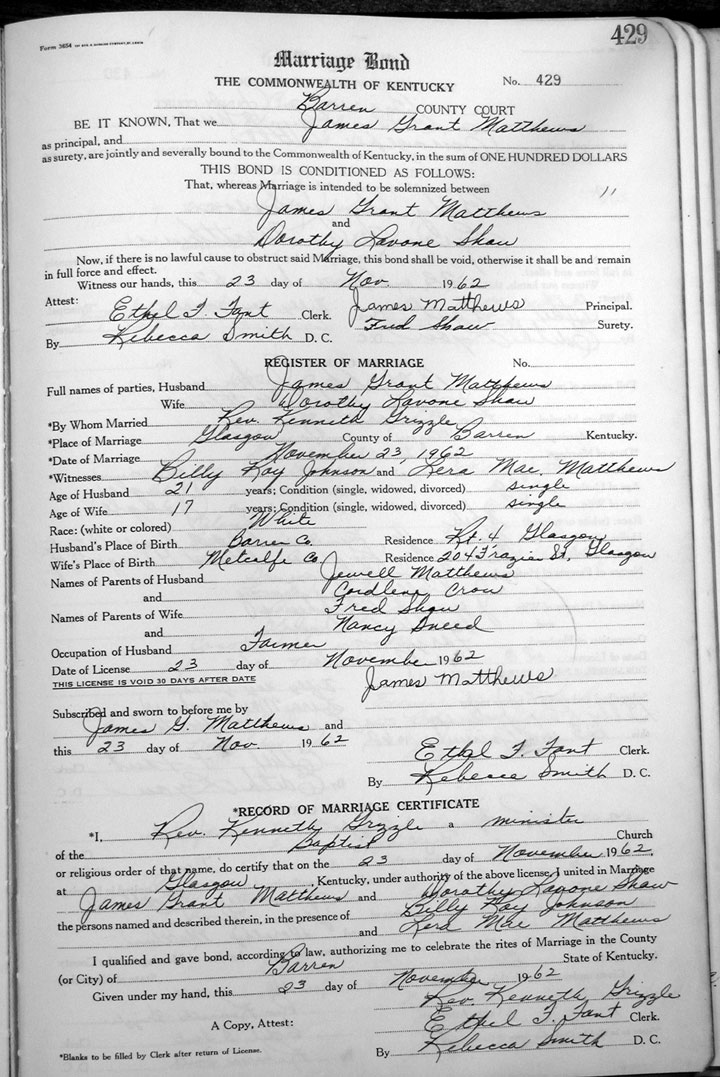 429
Form 3654
Marriage Bond
THE COMMONWEALTH OF KENTUCKY No. 429
Barren COUNTY COURT
BE IT KNOWN, That we James Grant Matthews
as principal, and
as surety, are jointly and severally bound to the Commonwealth of Kentucky, in the sum of ONE HUNDRED DOLLARS
THIS BOND IS CONDITIONED AS FOLLOWS:
That, whereas Marriage is intended to be solemnized between
James Grant Matthews
and
Dorothy Lavone Shaw
Now, if there is no lawful cause to obstruct said Marriage, this bond shall be void, otherwise it shall be and remain
in full force and effect.
Witness our hands, this 23 day of Nov 1962
Attest:
Ethel T. Fant Clerk. James Matthews Principal.
By Rebecca Smith D. C. Fred Shaw Surety.
REGISTER OF MARRIAGE No.
Full names of parties, Husband James Grant Matthews
Wife Dorothy Lavone Shaw
*By Whom Married Rev. Kenneth Grizzle
*Place of Marriage Glasgow County of Barren Kentucky.
*Date of Marriage November 23, 1962
*Witnesses Billy Roy Johnson and Lera Mae. Matthews
Age of Husband 21 years; Condition (single, widowed, divorced) single
Age of Wife 17 years; Condition (single, widowed, divorced) single
Race: (white or colored) White
Husband's Place of Birth Barren Co. Residence Rt. 4 Glasgow
Wife's Place of Birth Metcalfe Co. Residence 204 Frazier St, Glasgow
Names of Parents of Husband Jewell Matthews
and Cordlena Crow
Names of Parents of Wife Fred Shaw
and Nancy Sneed
Occupation of Husband Farmer
Date of License 23 day of November 1962
THIS LICENSE IS VOID 30 DAYS AFTER DATE
James Matthews
Subscribed and sworn to before me by
James G. Matthews and
this 23 day of Nov 1962
Ethel T. Fant Clerk.
By Rebecca Smith D. C.
*RECORD OF MARRIAGE CERTIFICATE
*I, Rev. Kenneth Grizzle a minister
of the Baptist Church
or religious order of that name, do certify that on the 23 day of November 1962,
at Glasgow, Kentucky, under authority of the above license, I united in Marriage
James Grant Matthews and Dorothy Lavone Shaw
the persons named and described therein, in the presence of Billy Roy Johnson
and Lera Mae Matthews
I qualified and gave bond, according to law, authorizing me to celebrate the rites of Marriage in the County
(or City) of Barren State of Kentucky.
Given under my hand, this 23 day of November 1962
Rev. Kenneth Grizzle
A Copy, Attest: Ethel T. Fant Clerk.
By Rebecca Smith D. C.
*Blanks to be filled by Clerk after return of License.